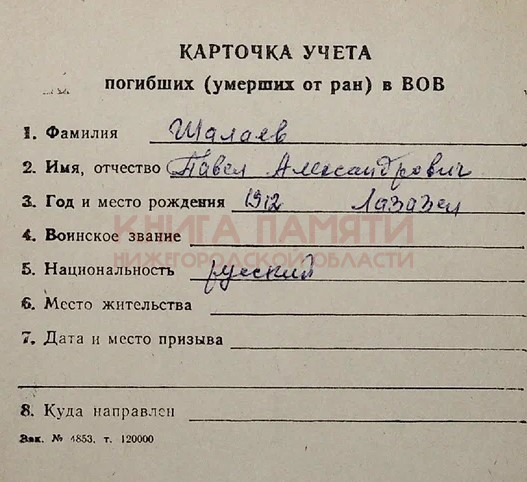 КАРТОЧКА УЧЕТА
погибших (умерших от ран) в ВОВ
1. Фамилия Шалаев
2. Имя, отчество Павел Александрович
3. Год и место рождения 1912 Лазазей
КНИГА ПАМЯТИ
4. Воинское звание
НИЖЕГОРОДСКОЙ ОБЛАСТИ
5. Национальность русский
6. Место жительства
7. Дата и место призыва
8. Куда направлен
Зак. № 4853. т. 120000